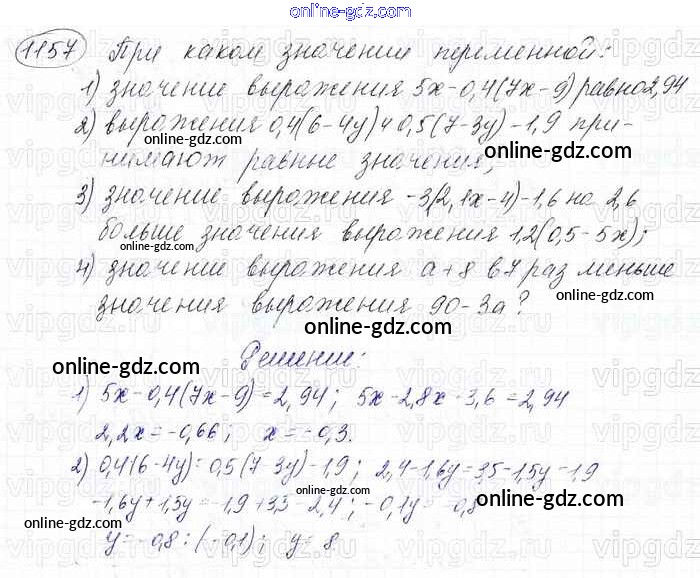 online-gdz.com
1157 При каком значении переменной:
1) значение выражения 5x-0,4(7x-9) равно 2,94
2) выражения 0,4(6-4y) и 0,5(7-3y)-1,9 при-
нимают равные значения;
online-gdz.com
3) значение выражения -3(2,1x-4)-1,6 на 2,6
больше значения выражения 1,2(0,5-5x);
online-gdz.com
4) значение выражения a+8 в 7 раз меньше
значения выражения 90-3a?
online-gdz.com
online-gdz.com
Решение:
online-gdz.com
1) 5x-0,4(7x-9)=2,94; 5x-2,8x+3,6=2,94
2,2x=-0,66; x=-0,3.
online-gdz.com
2) 0,4(6-4y)=0,5(7-3y)-1,9; 2,4-1,6y=3,5-1,5y-1,9
-1,6y+1,5y=-1,9+3,5-2,4; -0,1y=-0,8
online-gdz.com
online-gdz.com
y=-0,8:(-0,1); y=8.